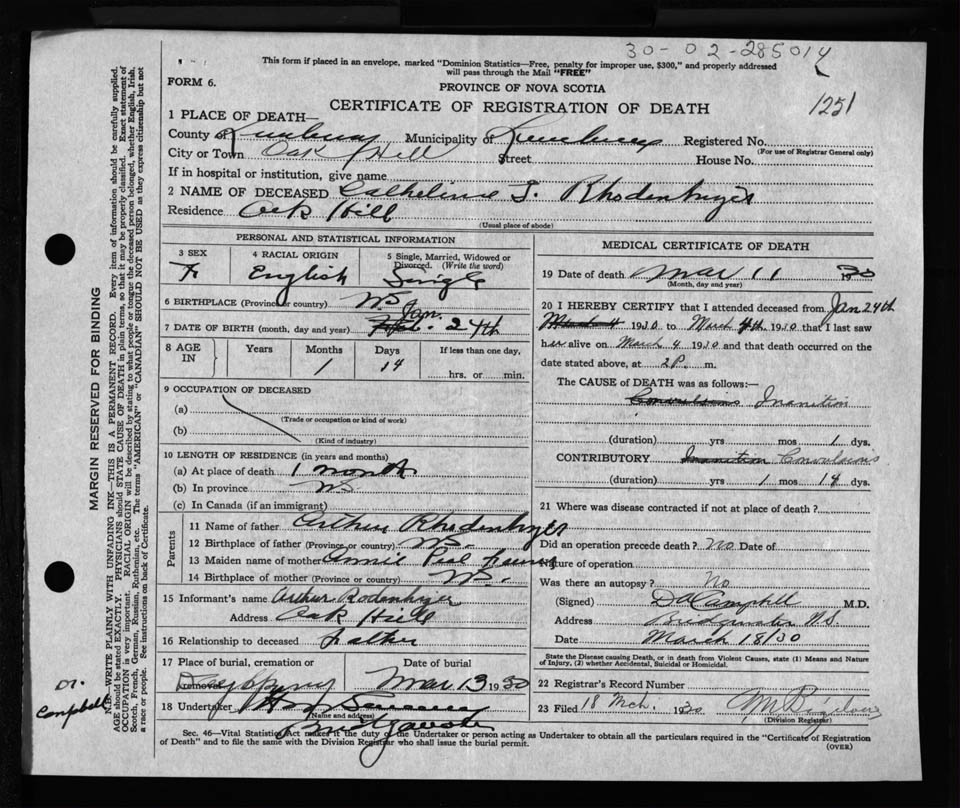 30-02-285014
This form if placed in an envelope, marked "Dominion Statistics—Free, penalty for improper use, $300," and properly addressed
will pass through the Mail "FREE"
FORM 6.
PROVINCE OF NOVA SCOTIA
CERTIFICATE OF REGISTRATION OF DEATH
1251
1 PLACE OF DEATH—
County of Lunenburg Municipality of Lunenburg Registered No.
(For use of Registrar General only)
City or Town Oak Hill Street House No.
If in hospital or institution, give name
2 NAME OF DECEASED Catheline Rhodenhyzer
Residence Oak Hill
(Usual place of abode)
PERSONAL AND STATISTICAL INFORMATION
3 SEX F
4 RACIAL ORIGIN English
5 Single, Married, Widowed or Divorced. (Write the word) Single
6 BIRTHPLACE (Province or country) NS
7 DATE OF BIRTH (month, day and year) Feb. Jan. 24th
8 AGE IN Years Months 1 Days 14 If less than one day, hrs. or min.
9 OCCUPATION OF DECEASED
(a)
(Trade or occupation or kind of work)
(b)
(Kind of industry)
10 LENGTH OF RESIDENCE (in years and months)
(a) At place of death 1 month
(b) In province NS
(c) In Canada (if an immigrant)
Parents
11 Name of father Arthur Rhodenhyzer
12 Birthplace of father (Province or country) NS.
13 Maiden name of mother Annie
14 Birthplace of mother (Province or country) NS.
15 Informant's name Arthur Rodenhyzer
Address Oak Hill
16 Relationship to deceased Father
17 Place of burial, cremation or removal
Date of burial Mar 13 1930
18 Undertaker
(Name and address)
MEDICAL CERTIFICATE OF DEATH
19 Date of death Mar 11 1930
(Month, day and year)
20 I HEREBY CERTIFY that I attended deceased from Jan 24th
March 4 1930 to March 4th 1930 that I last saw
her alive on March 4 1930 and that death occurred on the
date stated above, at 2 P. m.
The CAUSE of DEATH was as follows:—
Convulsions Inanition
(duration) yrs mos 1 dys.
CONTRIBUTORY Inanition Convulsions
(duration) yrs 1 mos 14 dys.
21 Where was disease contracted if not at place of death?
Did an operation precede death? No Date of
Nature of operation
Was there an autopsy? No
(Signed) D A Campbell M.D.
Address Bridgewater N.S.
Date March 18/30
State the Disease causing Death, or in death from Violent Causes, state (1) Means and Nature
of Injury, (2) whether Accidental, Suicidal or Homicidal.
22 Registrar's Record Number
23 Filed 18 Mch. 1930
(Division Registrar)
Sec. 46—Vital Statistics Act makes it the duty of the Undertaker or person acting as Undertaker to obtain all the particulars required in the "Certificate of Registration
of Death" and to file the same with the Division Registrar who shall issue the burial permit.
(OVER)
MARGIN RESERVED FOR BINDING
N.B. WRITE PLAINLY WITH UNFADING INK—THIS IS A PERMANENT RECORD. Every item of information should be carefully supplied.
AGE should be stated EXACTLY. PHYSICIANS should STATE CAUSE OF DEATH in plain terms, so that it may be properly classified. Exact statement of
OCCUPATION is very important. RACIAL ORIGIN will be described by stating to what people or tongue the deceased person belonged, whether English, Irish,
Scotch, French, German, Russian, Ruthenian, etc. The terms "AMERICAN" or "CANADIAN" SHOULD NOT BE USED as they express citizenship but not
a race or people. See instructions on back of Certificate.
Dr. Campbell